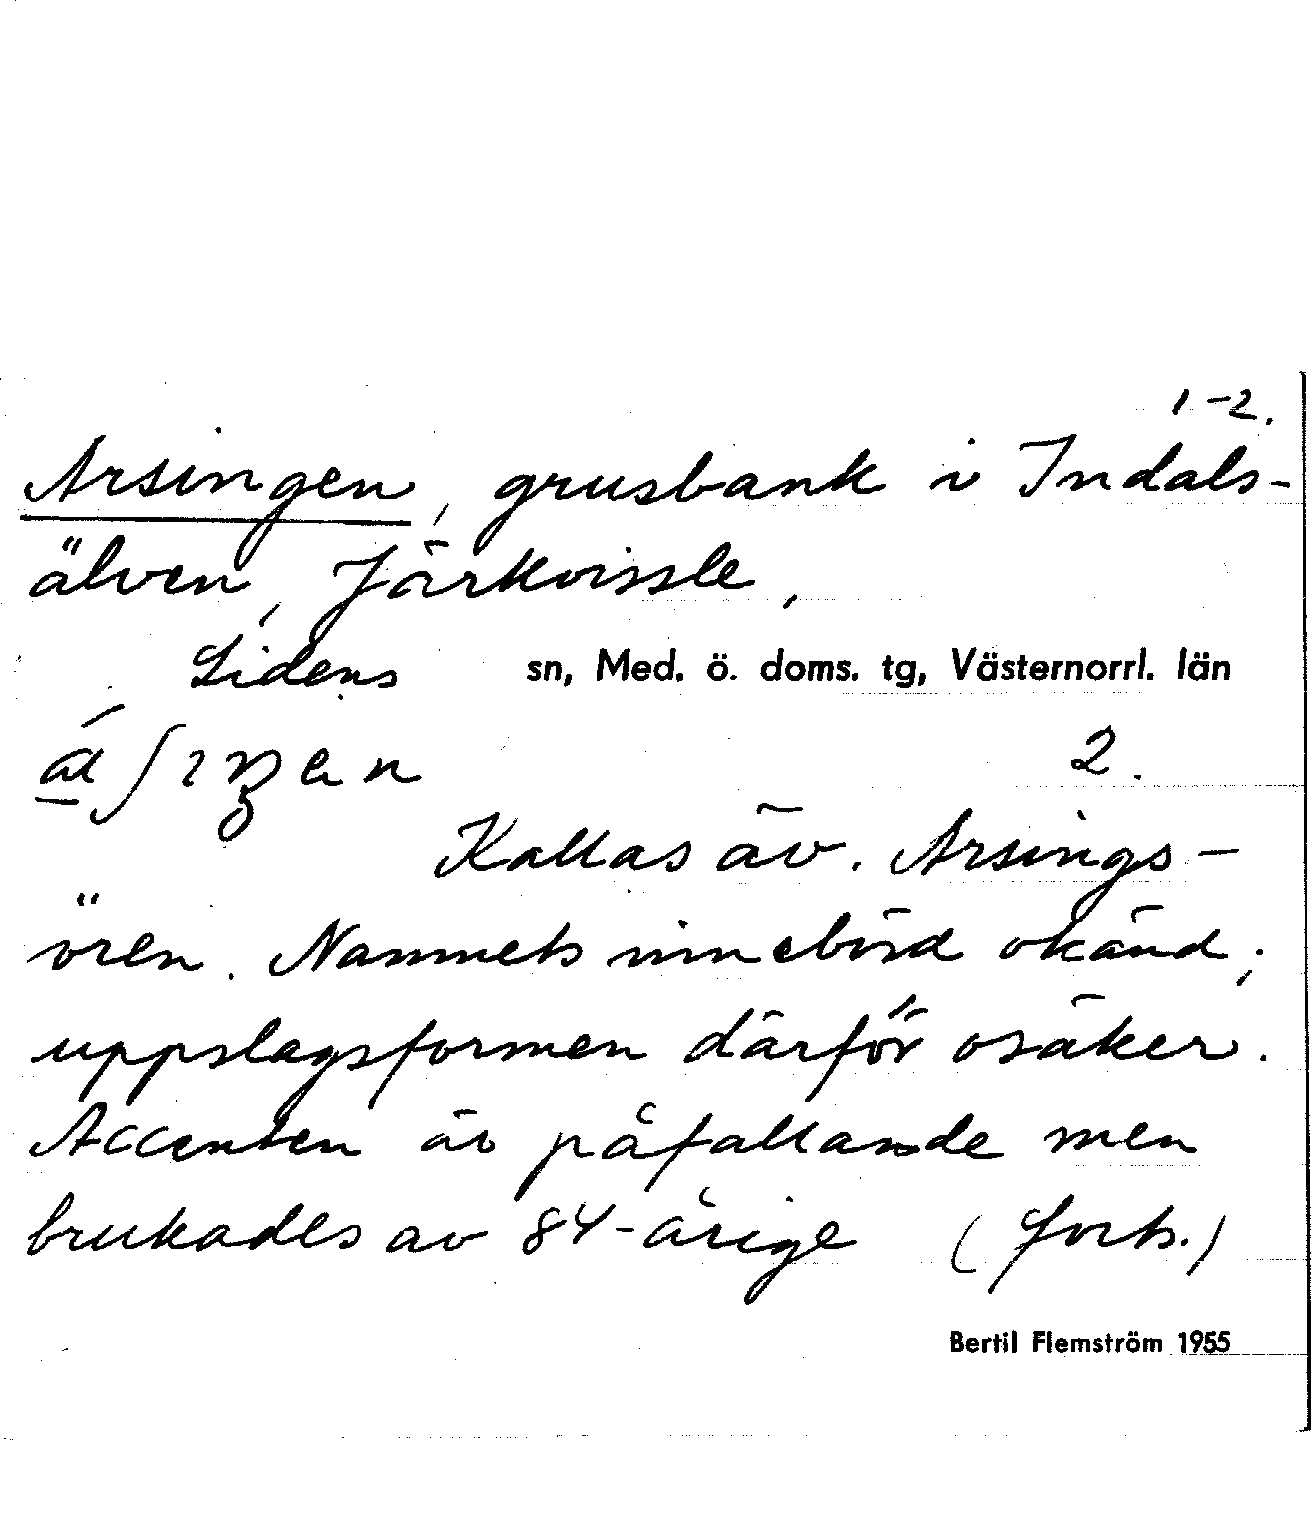 1-2.
Arsingen, grusbank i Indals-
älven, Järkvissle,
Lidens sn, Med. ö. doms. tg, Västernorrl. län
2.
Kallas äv. Arsings-
ören. Namnets innebörd okänd;
uppslagsformen därför osäker.
Accenten är påfallande men
brukades av 84-årige (forts.)
Bertil Flemström 1955